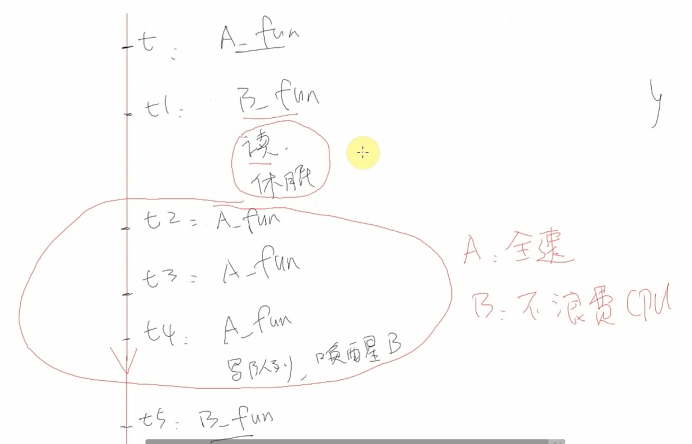 t: A_fun
t1: B_fun
读.
休眠
t2: A_fun
t3: A_fun
t4: A_fun
写队列, 唤醒B
t5: B_fun
A: 全速
B: 不浪费CPU
y